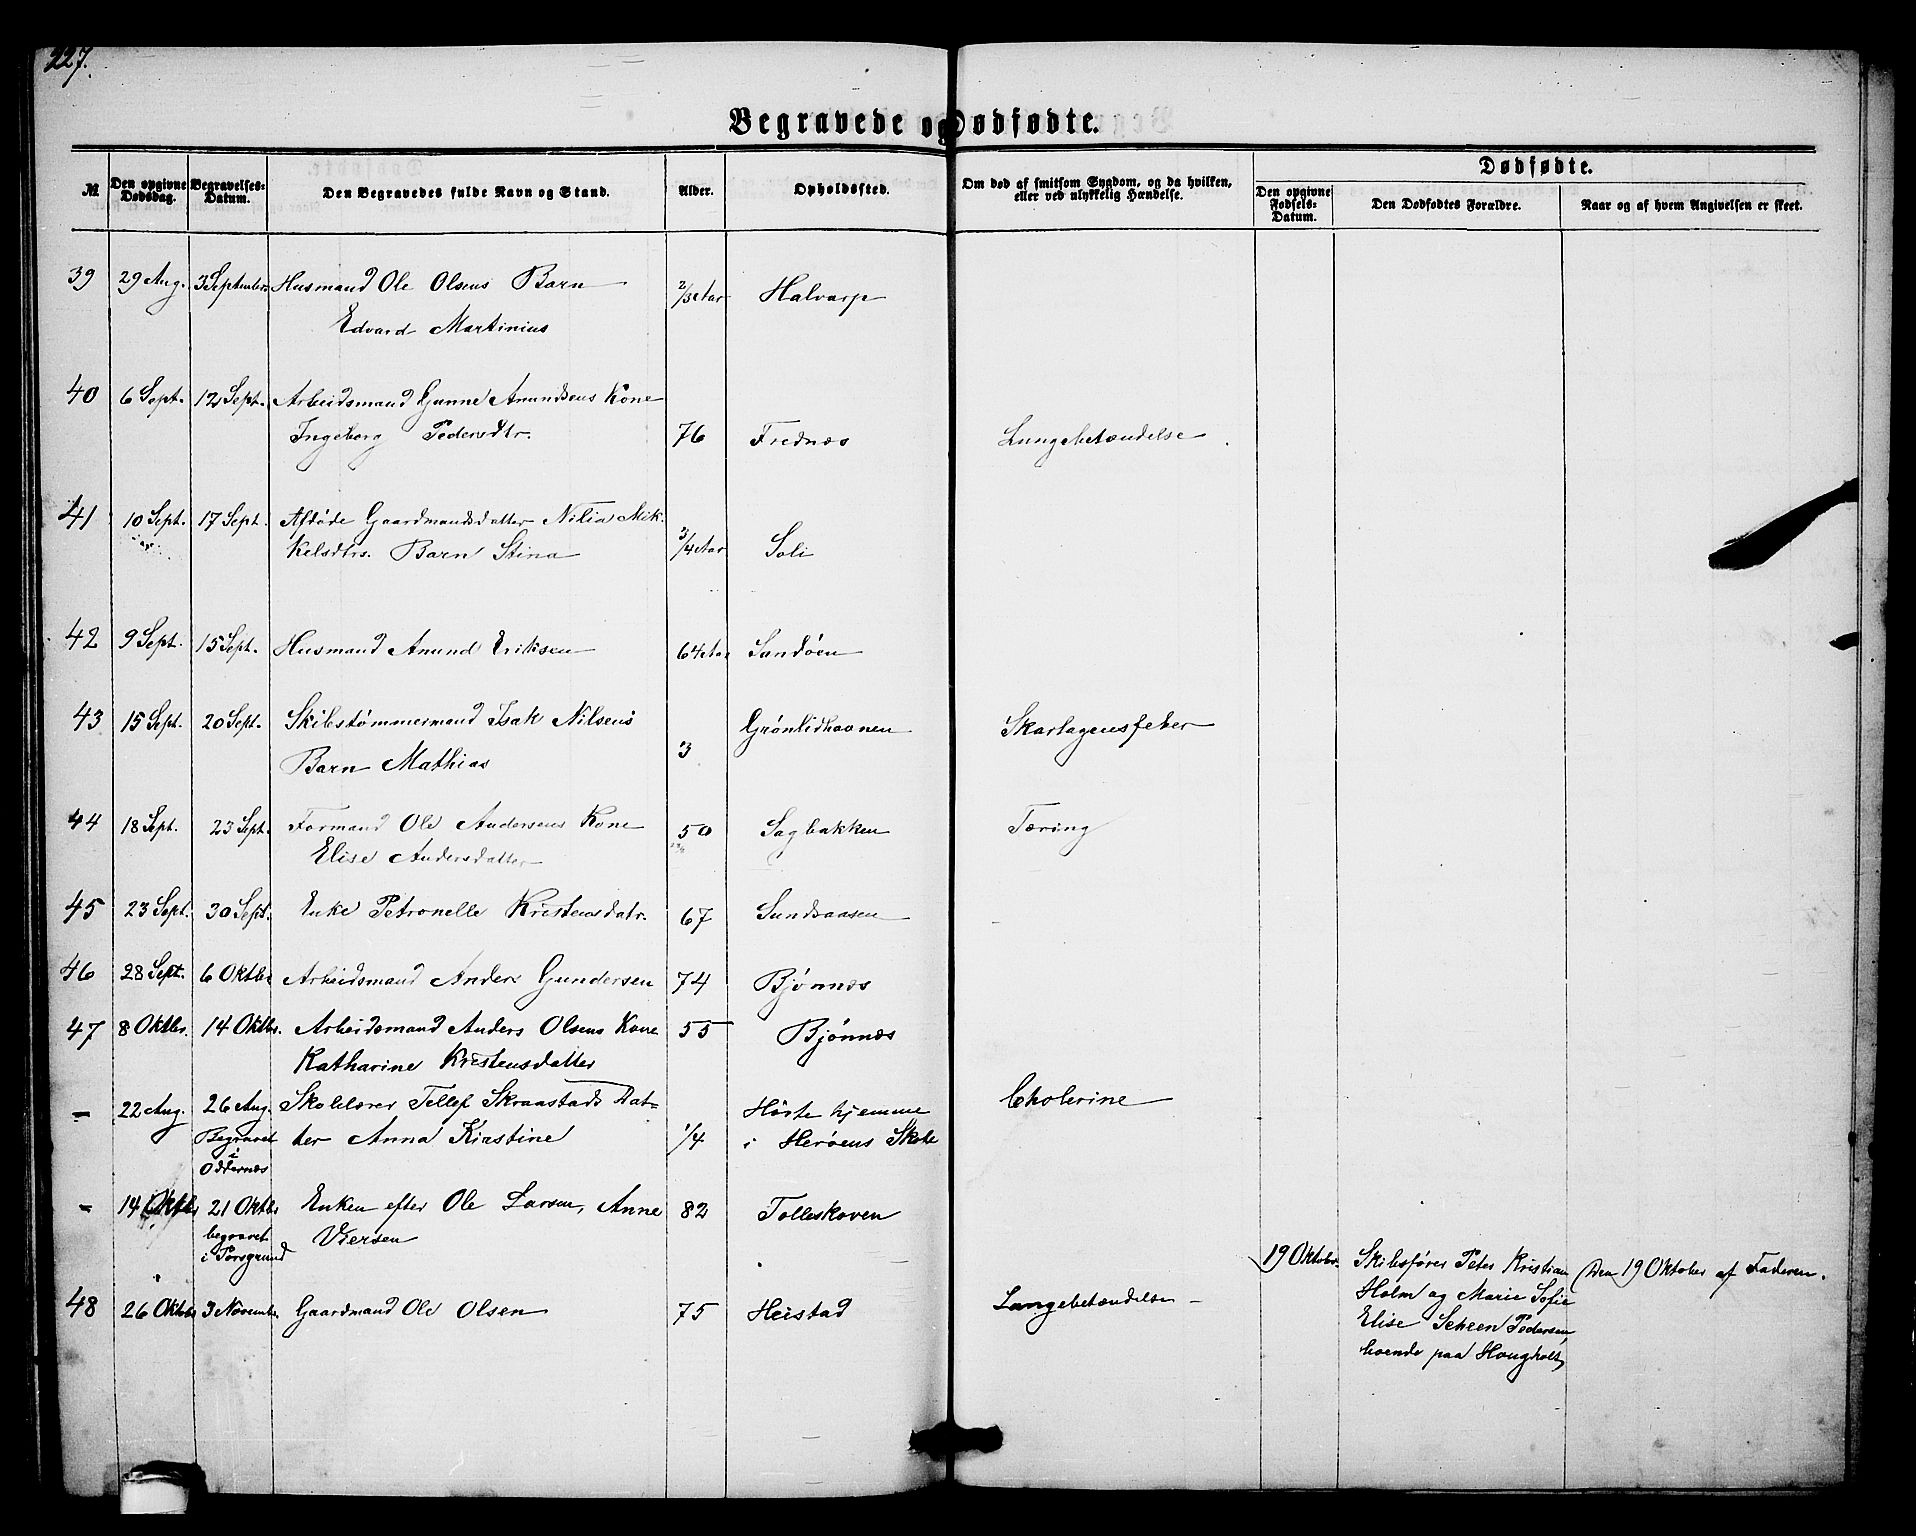 227.
Begravede og Dødfødte.
№
Den opgivne Dødsdag.
Begravelses-Datum.
Den Begravedes fulde Navn og Stand.
Alder.
Opholdssted.
Om død af smitsom Sygdom, og da hvilken,
eller ved ulykkelig Hændelse.
Dødfødte.
Den opgivne Fødsels-Datum.
Den Dødfødtes Forældre.
Naar og af hvem Angivelsen er skeet.
39 29 Aug. 3 September Husmand Ole Olsens Barn 2/3 Aar Halvarp
Edvard Martinius
40 6 Sept. 12 Sept. Arbeidsmand Gunne Amundsens Kone
Ingeborg Pedersdtr. 76 Frednæs Lungebetændelse
41 10 Sept. 17 Sept. Afdøde Gaardmandsdatter Nilia Mik-
kelsdtrs. Barn Stina 3/4 Aar Soli
42 9 Sept. 15 Sept. Husmand Amund Eriksen 64 Aar Sandøen
43 15 Sept. 20 Sept. Skibstømmermand Isak Nilsens Grønlidhavnen Skarlagensfeber
Barn Mathias 3
44 18 Sept. 23 Sept. Formand Ole Andersens Kone 50 Sagbakken Tæring
Elise Andersdatter
45 23 Sept. 30 Sept. Enke Petronelle Kristensdatr. 67 Sundsaasen
46 28 Sept. 6 Oktbr Arbeidsmand Anders Gundersen 74 Bjønnæs
47 8 Oktbr. 14 Oktbr. Arbeidsmand Anders Olsens Kone 55 Bjønnæs
Katharine Kristensdatter
- 22 Aug. 26 Aug. Skolelærer Tellef Skraastads Dat- Hørte hjemme Cholerine
Begravet i Oddernæs ter Anna Kirstine 1/4 i Herøens Skole
- 14 Oktbr 21 Oktbr Enken efter Ole Larsen, Anne 82 Tolleskoven
begravet i Porsgrund Viersen
19 Oktobr. Skibsfører Peter Kristian Den 19 Oktober af Faderen.
Holm og Marie Sofie
Elise Scheen Pedersen,
boende paa Hougholt
48 26 Oktbr 3 Novembr. Gaardmand Ole Olsen 75 Heistad Lungebetændelse